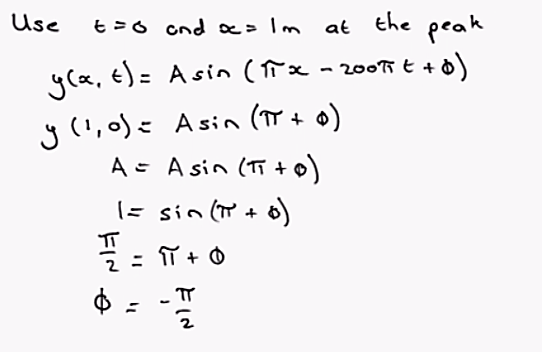 Use t=0 and x=1m at the peak
y(x, t) = A sin (πx - 200πt + φ)
y (1,0) = A sin (π + φ)
A = A sin (π + φ)
1 = sin (π + φ)
π/2 = π + φ
φ = -π/2